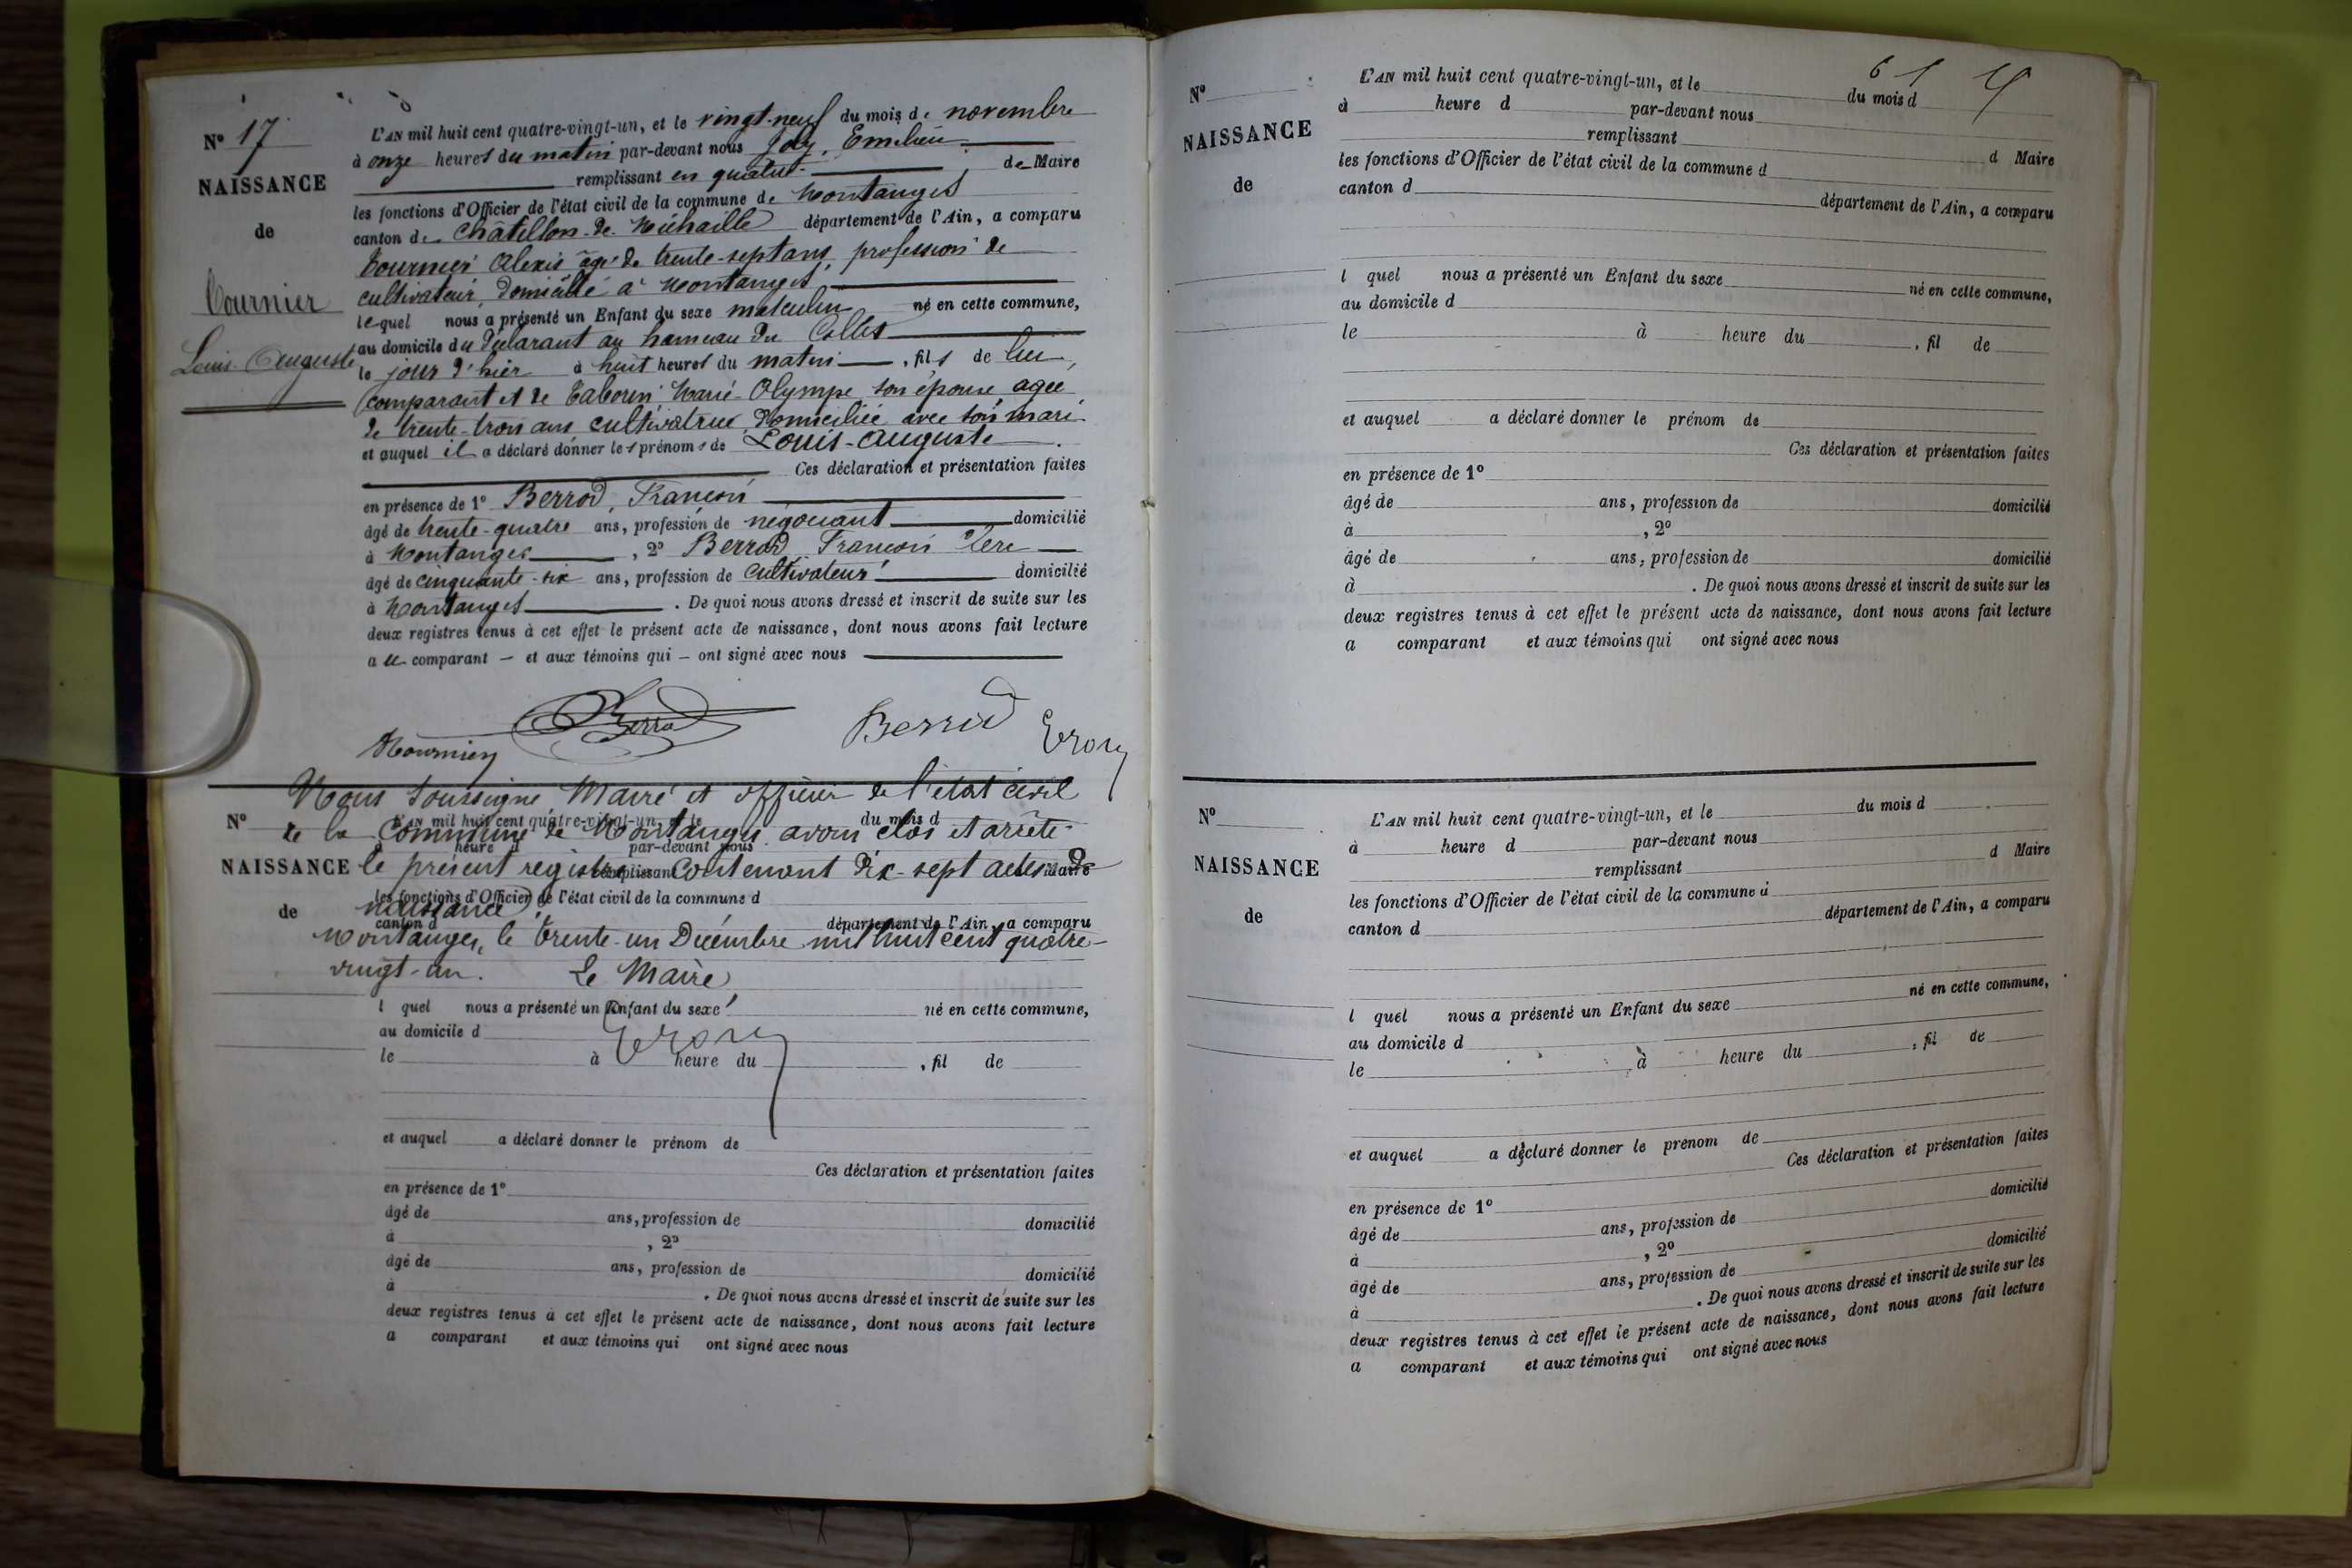 N° 17
NAISSANCE
de
Tournier
Louis-Auguste
L'AN mil huit cent quatre-vingt-un, et le vingt-neuf du mois de novembre
à onze heures du matin par-devant nous Joly, Emilien
remplissant en qualité de Maire
les fonctions d'Officier de l'état civil de la commune de Montanges
canton de Châtillon-de-Michaille département de l'Ain, a comparu
Tournier Alexis âgé de trente-sept ans, profession de
cultivateur, domicilié à Montanges,
lequel nous a présenté un Enfant du sexe masculin né en cette commune,
au domicile du déclarant au hameau du
le jour d'hier à huit heures du matin, fils de lui,
comparant et de Marie-Olympe son épouse, agée
de trente-trois ans cultivatrice, domiciliée avec son mari
et auquel il a déclaré donner les prénoms de Louis-Auguste.
Ces déclaration et présentation faites
en présence de 1° Berrod, François
âgé de trente-quatre ans, profession de négociant domicilié
à Montanges, 2° Berrod François Père
âgé de cinquante-six ans, profession de cultivateur domicilié
à Montanges. De quoi nous avons dressé et inscrit de suite sur les
deux registres tenus à cet effet le présent acte de naissance, dont nous avons fait lecture
au comparant — et aux témoins qui — ont signé avec nous
Berrod Berrod
Tournier
Nous soussigné Maire et officier de l'état civil
N° L'AN mil huit cent quatre-vingt-un, et le du mois d
de la commune de Montanges avons clos et arrêté
à heure d par-devant nous
NAISSANCE le présent registre contenant dix-sept actes de
remplissant Maire
les fonctions d'Officier de l'état civil de la commune d
de naissance.
canton d département de l'Ain, a comparu
Montanges, le trente-un Décembre mil huit cent quatre-
vingt-un. Le Maire,
l quel nous a présenté un Enfant du sexe né en cette commune,
au domicile d
le à heure du , fil de
et auquel a déclaré donner le prénom de
Ces déclaration et présentation faites
en présence de 1°
âgé de ans, profession de domicilié
à , 2°
âgé de ans, profession de domicilié
à . De quoi nous avons dressé et inscrit de suite sur les
deux registres tenus à cet effet le présent acte de naissance, dont nous avons fait lecture
a comparant et aux témoins qui ont signé avec nous
N°
NAISSANCE
de
L'AN mil huit cent quatre-vingt-un, et le du mois d
à heure d par-devant nous
remplissant d Maire
les fonctions d'Officier de l'état civil de la commune d
canton d département de l'Ain, a comparu
l quel nous a présenté un Enfant du sexe né en cette commune,
au domicile d
le à heure du , fil de
et auquel a déclaré donner le prénom de
Ces déclaration et présentation faites
en présence de 1°
âgé de ans, profession de domicilié
à , 2°
âgé de ans, profession de domicilié
à . De quoi nous avons dressé et inscrit de suite sur les
deux registres tenus à cet effet le présent acte de naissance, dont nous avons fait lecture
a comparant et aux témoins qui ont signé avec nous
N°
NAISSANCE
de
L'AN mil huit cent quatre-vingt-un, et le du mois d
à heure d par-devant nous
remplissant d Maire
les fonctions d'Officier de l'état civil de la commune d
canton d département de l'Ain, a comparu
l quel nous a présenté un Enfant du sexe né en cette commune,
au domicile d
le à heure du , fil de
et auquel a déclaré donner le prénom de
Ces déclaration et présentation faites
en présence de 1°
âgé de ans, profession de domicilié
à , 2°
âgé de ans, profession de domicilié
à . De quoi nous avons dressé et inscrit de suite sur les
deux registres tenus à cet effet le présent acte de naissance, dont nous avons fait lecture
a comparant et aux témoins qui ont signé avec nous